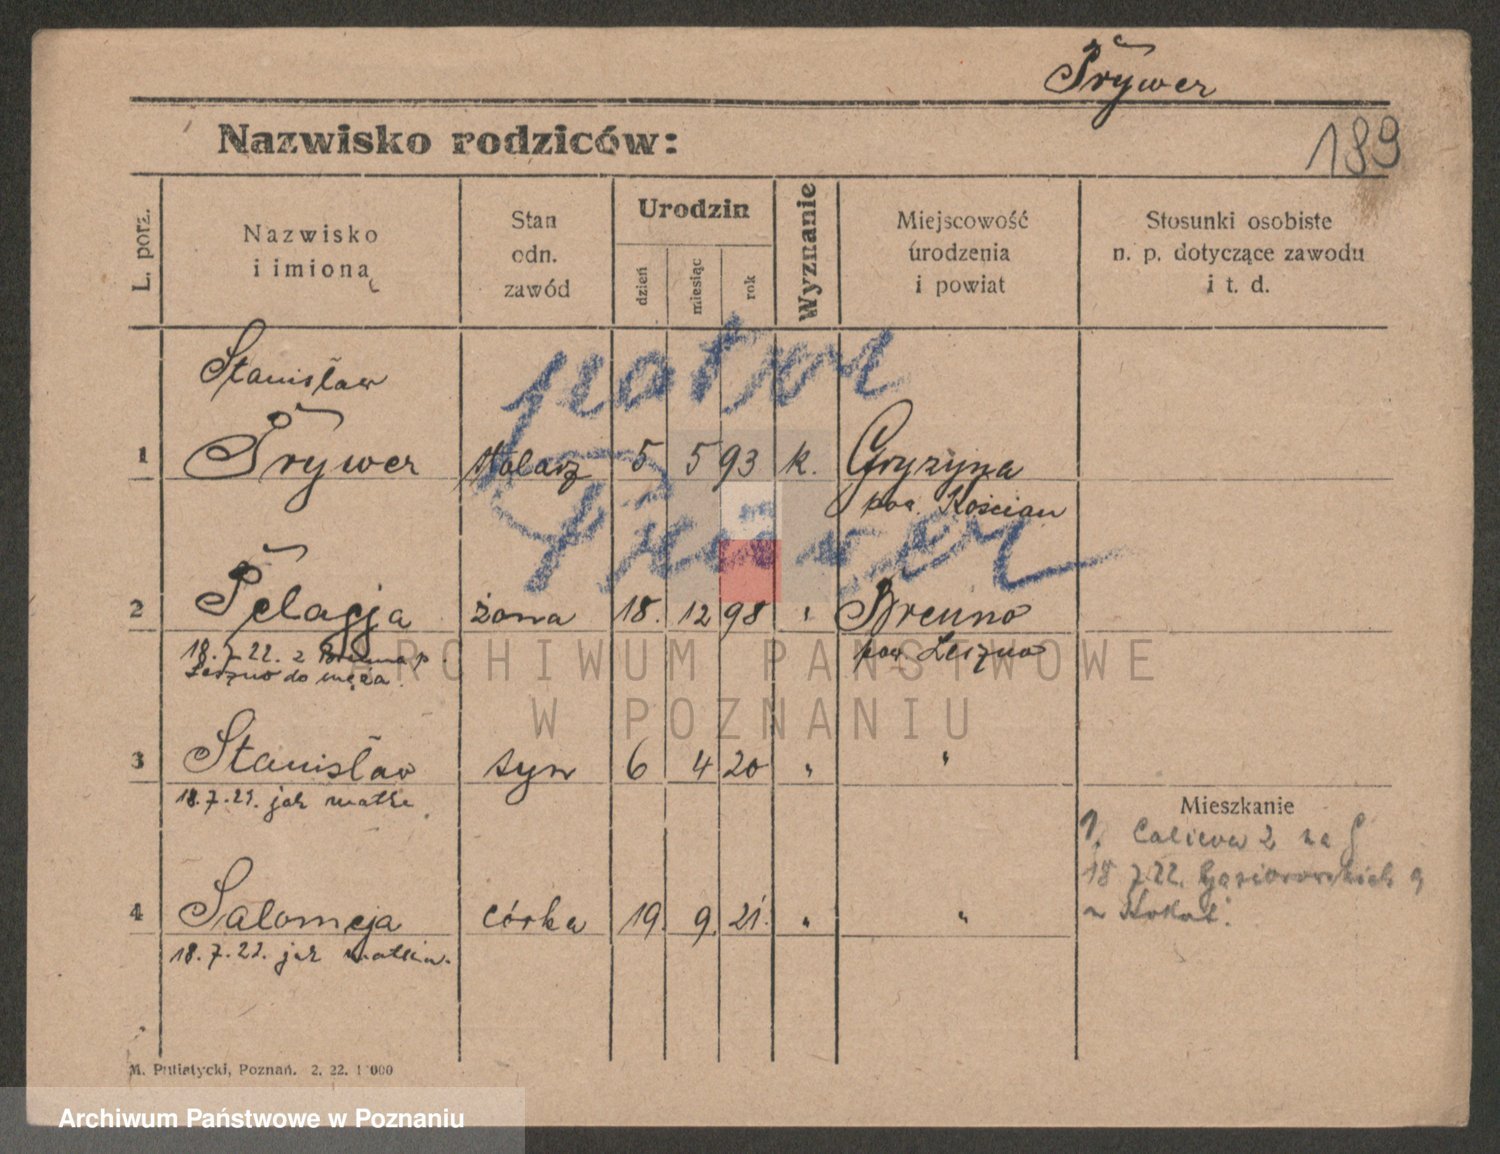 Prywer
189
Nazwisko rodziców:
L. porz.
Nazwisko
i imiona
Stan
odn.
zawód
Urodzin
dzień
miesiąc
rok
Wyznanie
Miejscowość
urodzenia
i powiat
Stosunki osobiste
n. p. dotyczące zawodu
i t. d.
patrz
Stanisław
1 Prywer stolarz 5 5 93 k. Gryzyna
pow. Kościan
2 Pelagja żona 18. 12 98 " Brenno
18.7.22. z Brenna p. pow. Leszno
Leszno do męża.
ARCHIWUM PAŃSTWOWE
W POZNANIU
3 Stanisław syn 6 4 20 " "
18.7.22. jak matka
Mieszkanie
1. 2 na
4 Salomeja córka 19. 9. 21. " "
18 7.22.
18.7.22. jak matka.
M. Putiatycki, Poznań. 2. 22. 1000
Archiwum Państwowe w Poznaniu